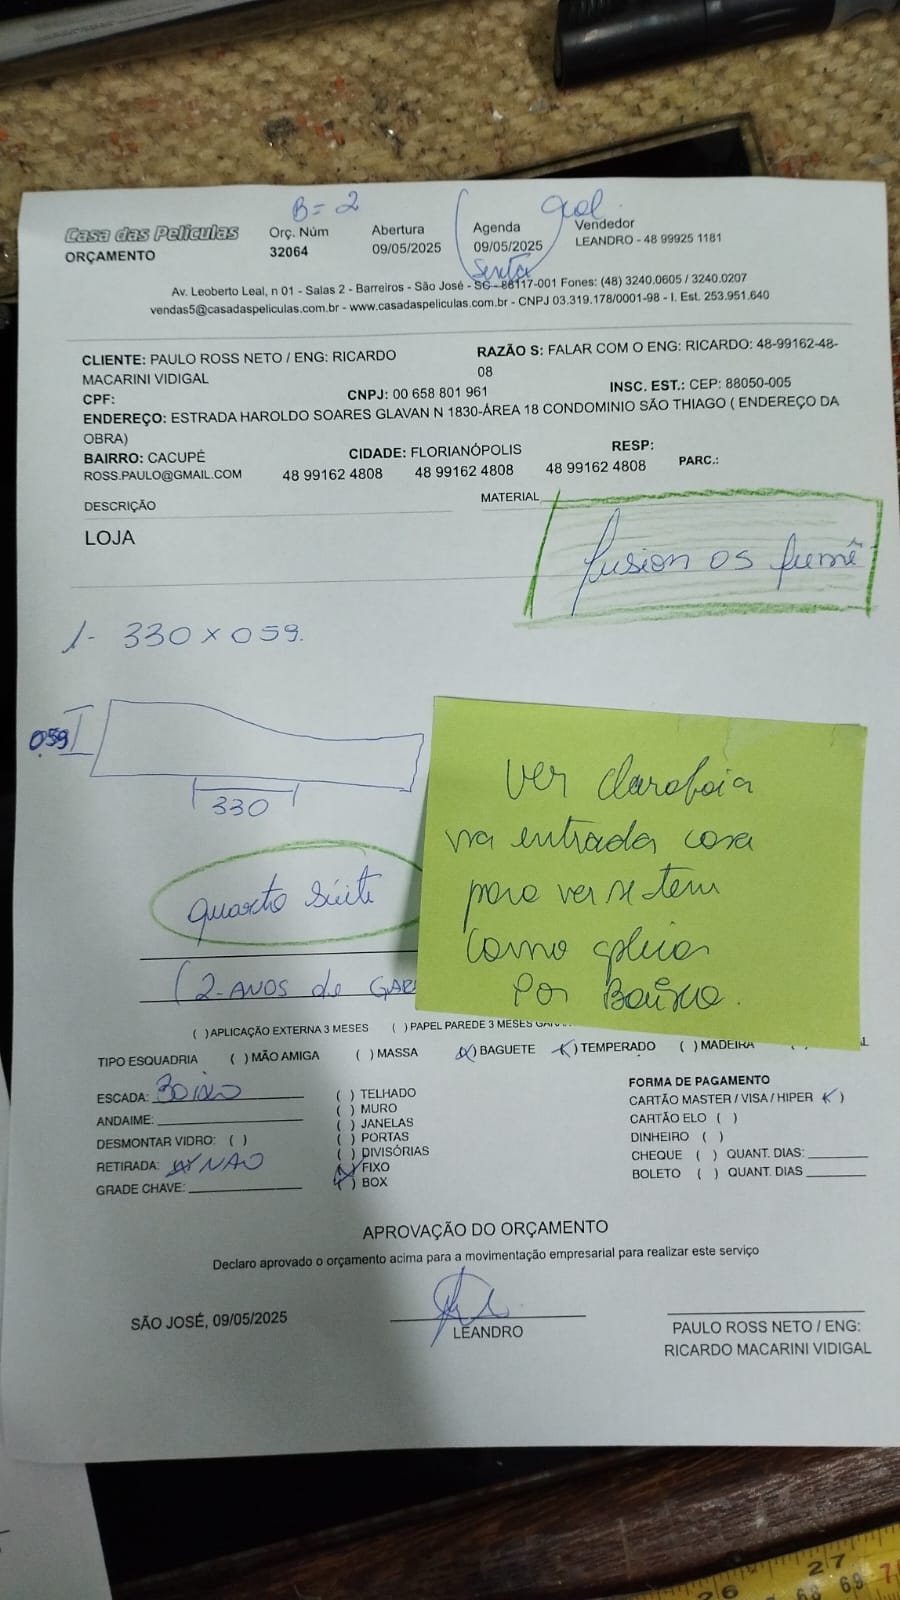 B = 2
Gol
Casa das Películas
ORÇAMENTO
Orç. Núm
32064
Abertura
09/05/2025
Agenda
09/05/2025
Sexta
Vendedor
LEANDRO - 48 99925 1181
Av. Leoberto Leal, n 01 - Salas 2 - Barreiros - São José - SC - 88117-001 Fones: (48) 3240.0605 / 3240.0207
vendas5@casadaspeliculas.com.br - www.casadaspeliculas.com.br - CNPJ 03.319.178/0001-98 - I. Est. 253.951.640
CLIENTE: PAULO ROSS NETO / ENG: RICARDO
MACARINI VIDIGAL
RAZÃO S: FALAR COM O ENG: RICARDO: 48-99162-48-
08
CPF:
CNPJ: 00 658 801 961
INSC. EST.: CEP: 88050-005
ENDEREÇO: ESTRADA HAROLDO SOARES GLAVAN N 1830-ÁREA 18 CONDOMINIO SÃO THIAGO ( ENDEREÇO DA
OBRA)
BAIRRO: CACUPÉ
CIDADE: FLORIANÓPOLIS
RESP:
ROSS.PAULO@GMAIL.COM
48 99162 4808
48 99162 4808
48 99162 4808
PARC.:
DESCRIÇÃO
MATERIAL
LOJA
fusion 05 fumê
1- 330 x 059.
059
330
quarto súite
Ver claraboia
na entrada casa
para ver se tem
como aplicar
por Baixo.
(2-ANOS de GAR
( )APLICAÇÃO EXTERNA 3 MESES ( )PAPEL PAREDE 3 MESES
TIPO ESQUADRIA ( )MÃO AMIGA ( )MASSA (X)BAGUETE (X)TEMPERADO ( )MADEIRA
ESCADA: Baixo
ANDAIME:
DESMONTAR VIDRO: ( )
RETIRADA: NÃO
GRADE CHAVE:
( ) TELHADO
( ) MURO
( ) JANELAS
( ) PORTAS
( ) DIVISÓRIAS
(X) FIXO
( ) BOX
FORMA DE PAGAMENTO
CARTÃO MASTER / VISA / HIPER (X)
CARTÃO ELO ( )
DINHEIRO ( )
CHEQUE ( ) QUANT. DIAS:
BOLETO ( ) QUANT. DIAS
APROVAÇÃO DO ORÇAMENTO
Declaro aprovado o orçamento acima para a movimentação empresarial para realizar este serviço
SÃO JOSÉ, 09/05/2025
LEANDRO
PAULO ROSS NETO / ENG:
RICARDO MACARINI VIDIGAL
26 27
68 69 7